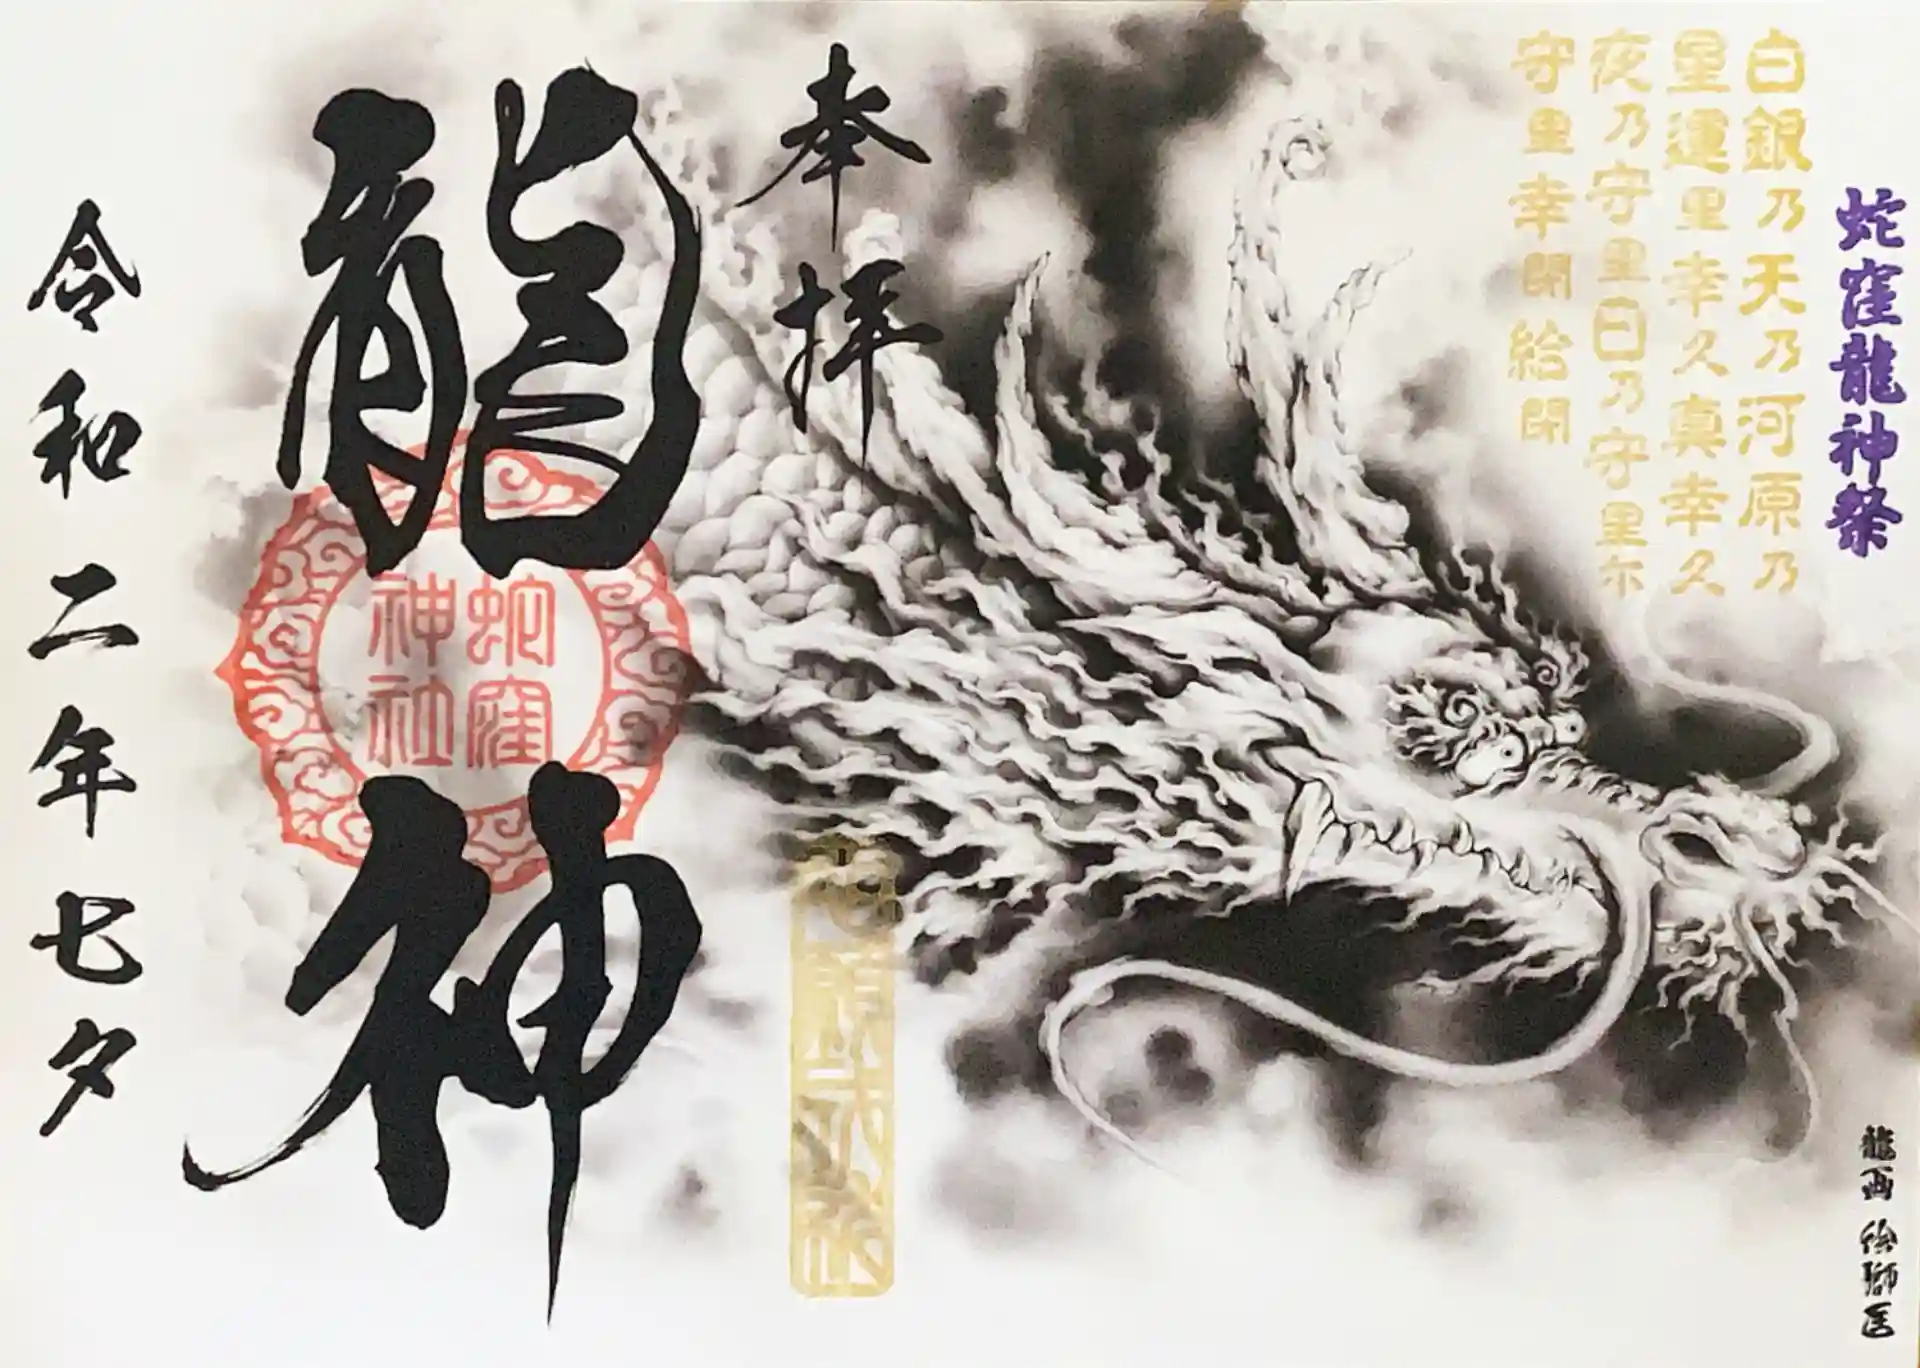 蛇窪龍神祭
白銀乃天乃河原乃
星運里幸久真幸久
夜乃守里日乃守里尓
守里幸閇給閇
奉拝
龍神
蛇窪
神社
令和二年七夕
龍画 絵獅匡